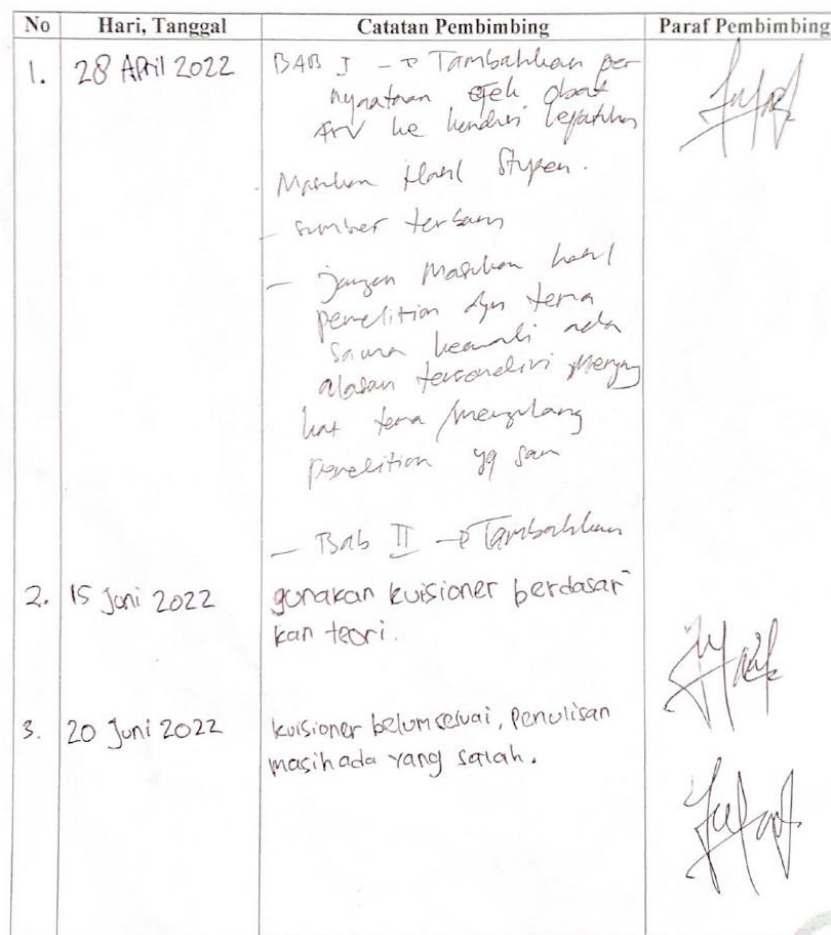 No Hari, Tanggal Catatan Pembimbing Paraf Pembimbing
1. 28 April 2022 BAB I → Tambahkan per
nyataan efek obat
ARV ke kondisi kepatuhan
Masukan Hasil Stupen.
- sumber terbaru
- jangan Masukan hasil
penelitian dgn tema
sama kecuali ada
alasan tersendiri mengang
kat tema /mengulang
penelitian yg sam
- Bab II → Tambahkan
2. 15 Juni 2022 gunakan kuisioner berdasar
kan teori.
3. 20 Juni 2022 kuisioner belum sesuai, Penulisan
masih ada yang salah.